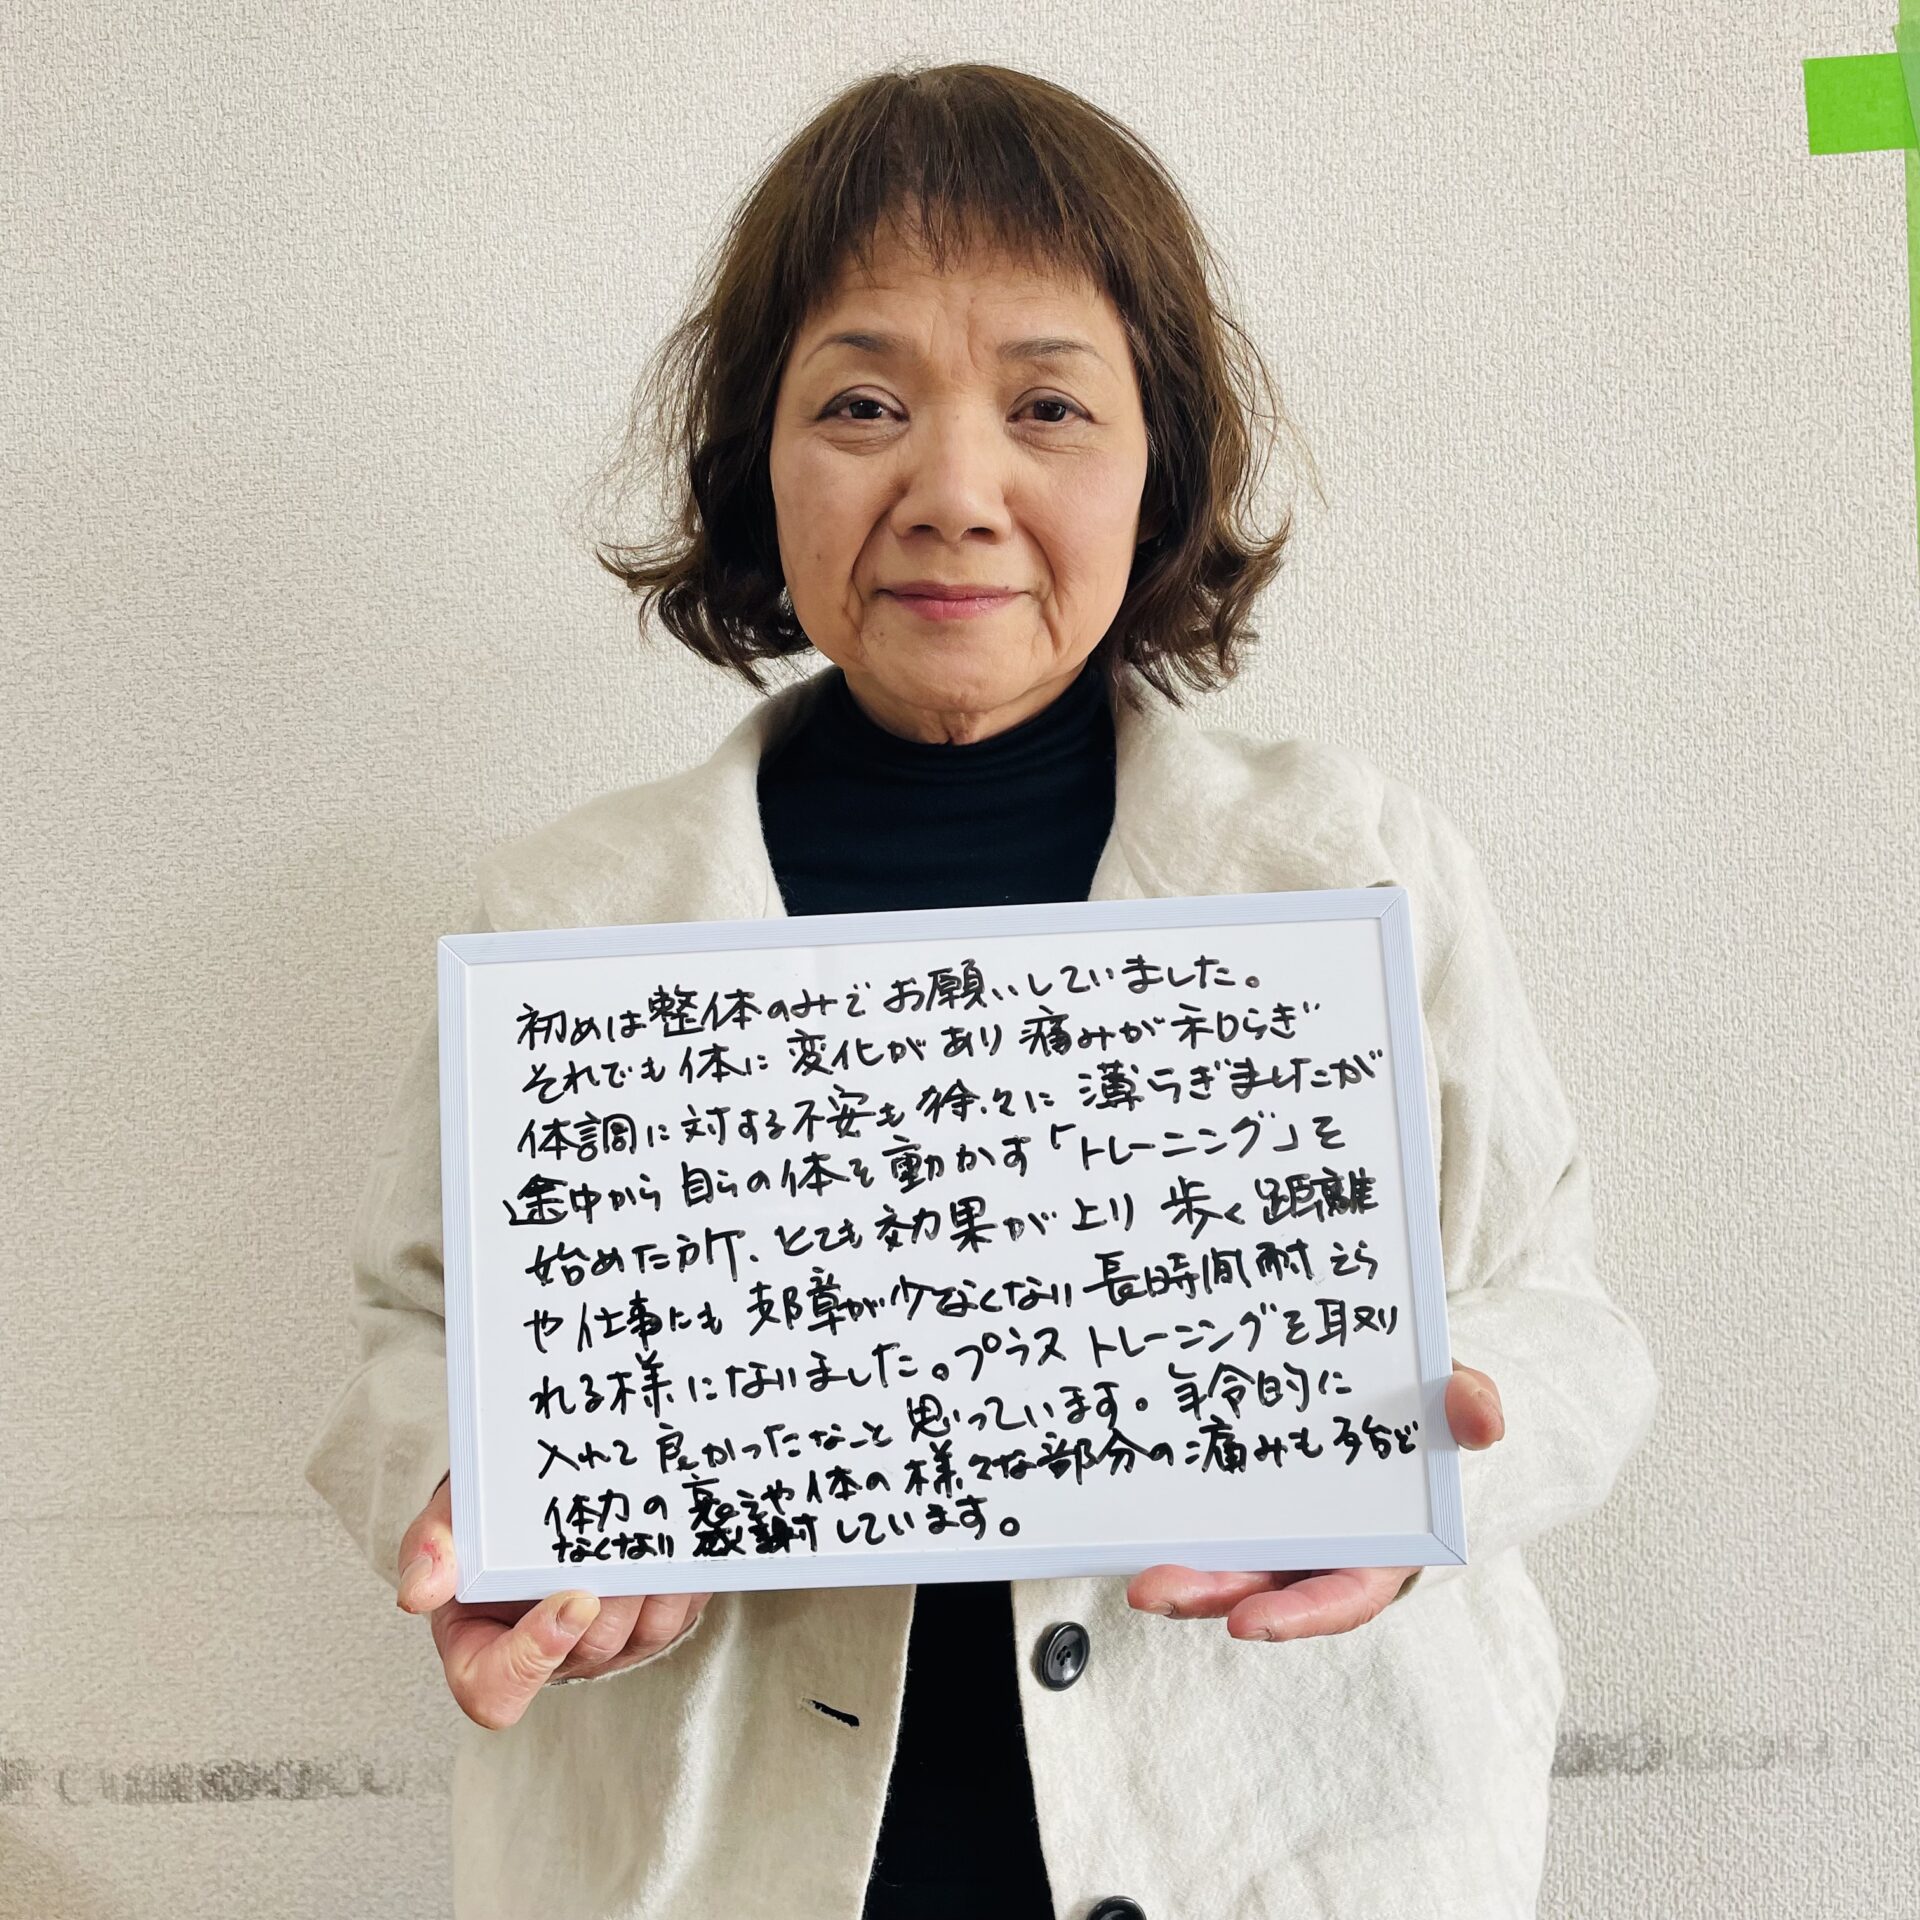 初めは整体のみでお願いしていました。
それでも体に変化があり痛みが和らぎ
体調に対する不安も徐々に薄らぎましたが
途中から自らの体を動かす「トレーニング」を
始めた所、とても効果が上り歩く距離
や仕事にも支障が少なくない長時間耐えら
れる様になりました。プラストレーニングを取り
入れて良かったなと思っています。年令的に
体力の衰えや体の様々な部分の痛みも殆ど
なくなり感謝しています。